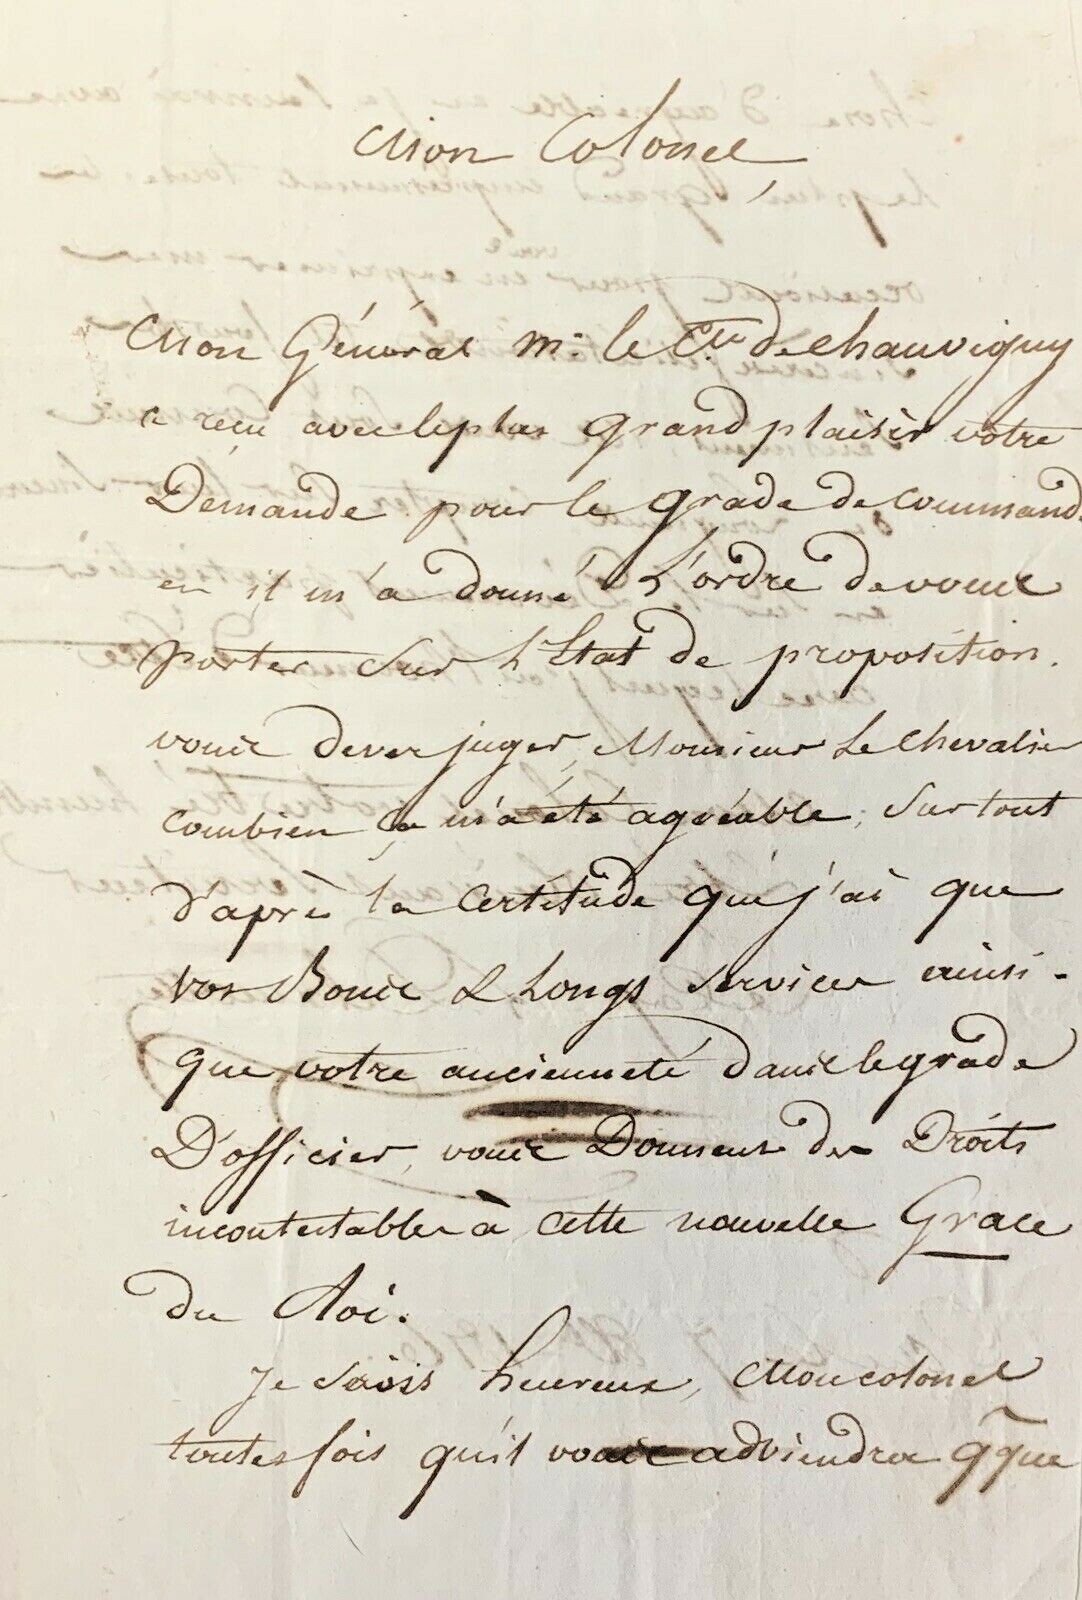 Mon Colonel
Mon Général Mr. le Cte de Chauvigny
a reçu avec le plus grand plaisir votre
Démande pour le grade de Command.
et il m'a donné L'ordre de vous
porter sur L'Etat de proposition.
vous devez juger, Monsieur Le Chevalier
combien ça m'a été agréable, Sur tout
d'après la Certitude que j'ai que
vos Bons & Longs services ainsi-
que votre ancienneté dans le grade
D'officier, vous Donnent des Droits
incontestables à cette nouvelle Grace
du Roi.
Je serois heureux, Mon colonel
toutes fois qu'il vous adviendra qque